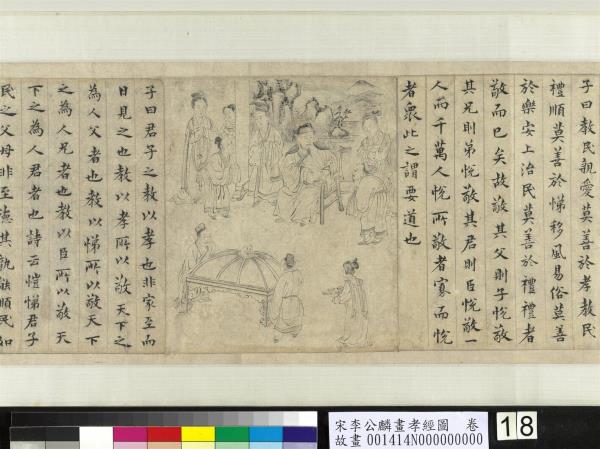 子曰教民親愛莫善於孝教民
禮順莫善於悌移風易俗莫善
於樂安上治民莫善於禮禮者
敬而已矣故敬其父則子悅敬
其兄則弟悅敬其君則臣悅敬一
人而千萬人悅所敬者寡而悅
者衆此之謂要道也
子曰君子之教以孝也非家至而
日見之也教以孝所以敬天下之
為人父者也教以悌所以敬天下
之為人兄者也教以臣所以敬天
下之為人君者也詩云愷悌君子
民之父母非至德其孰能順民如
宋李公麟畫孝經圖 卷
故畫 001414N000000000
18